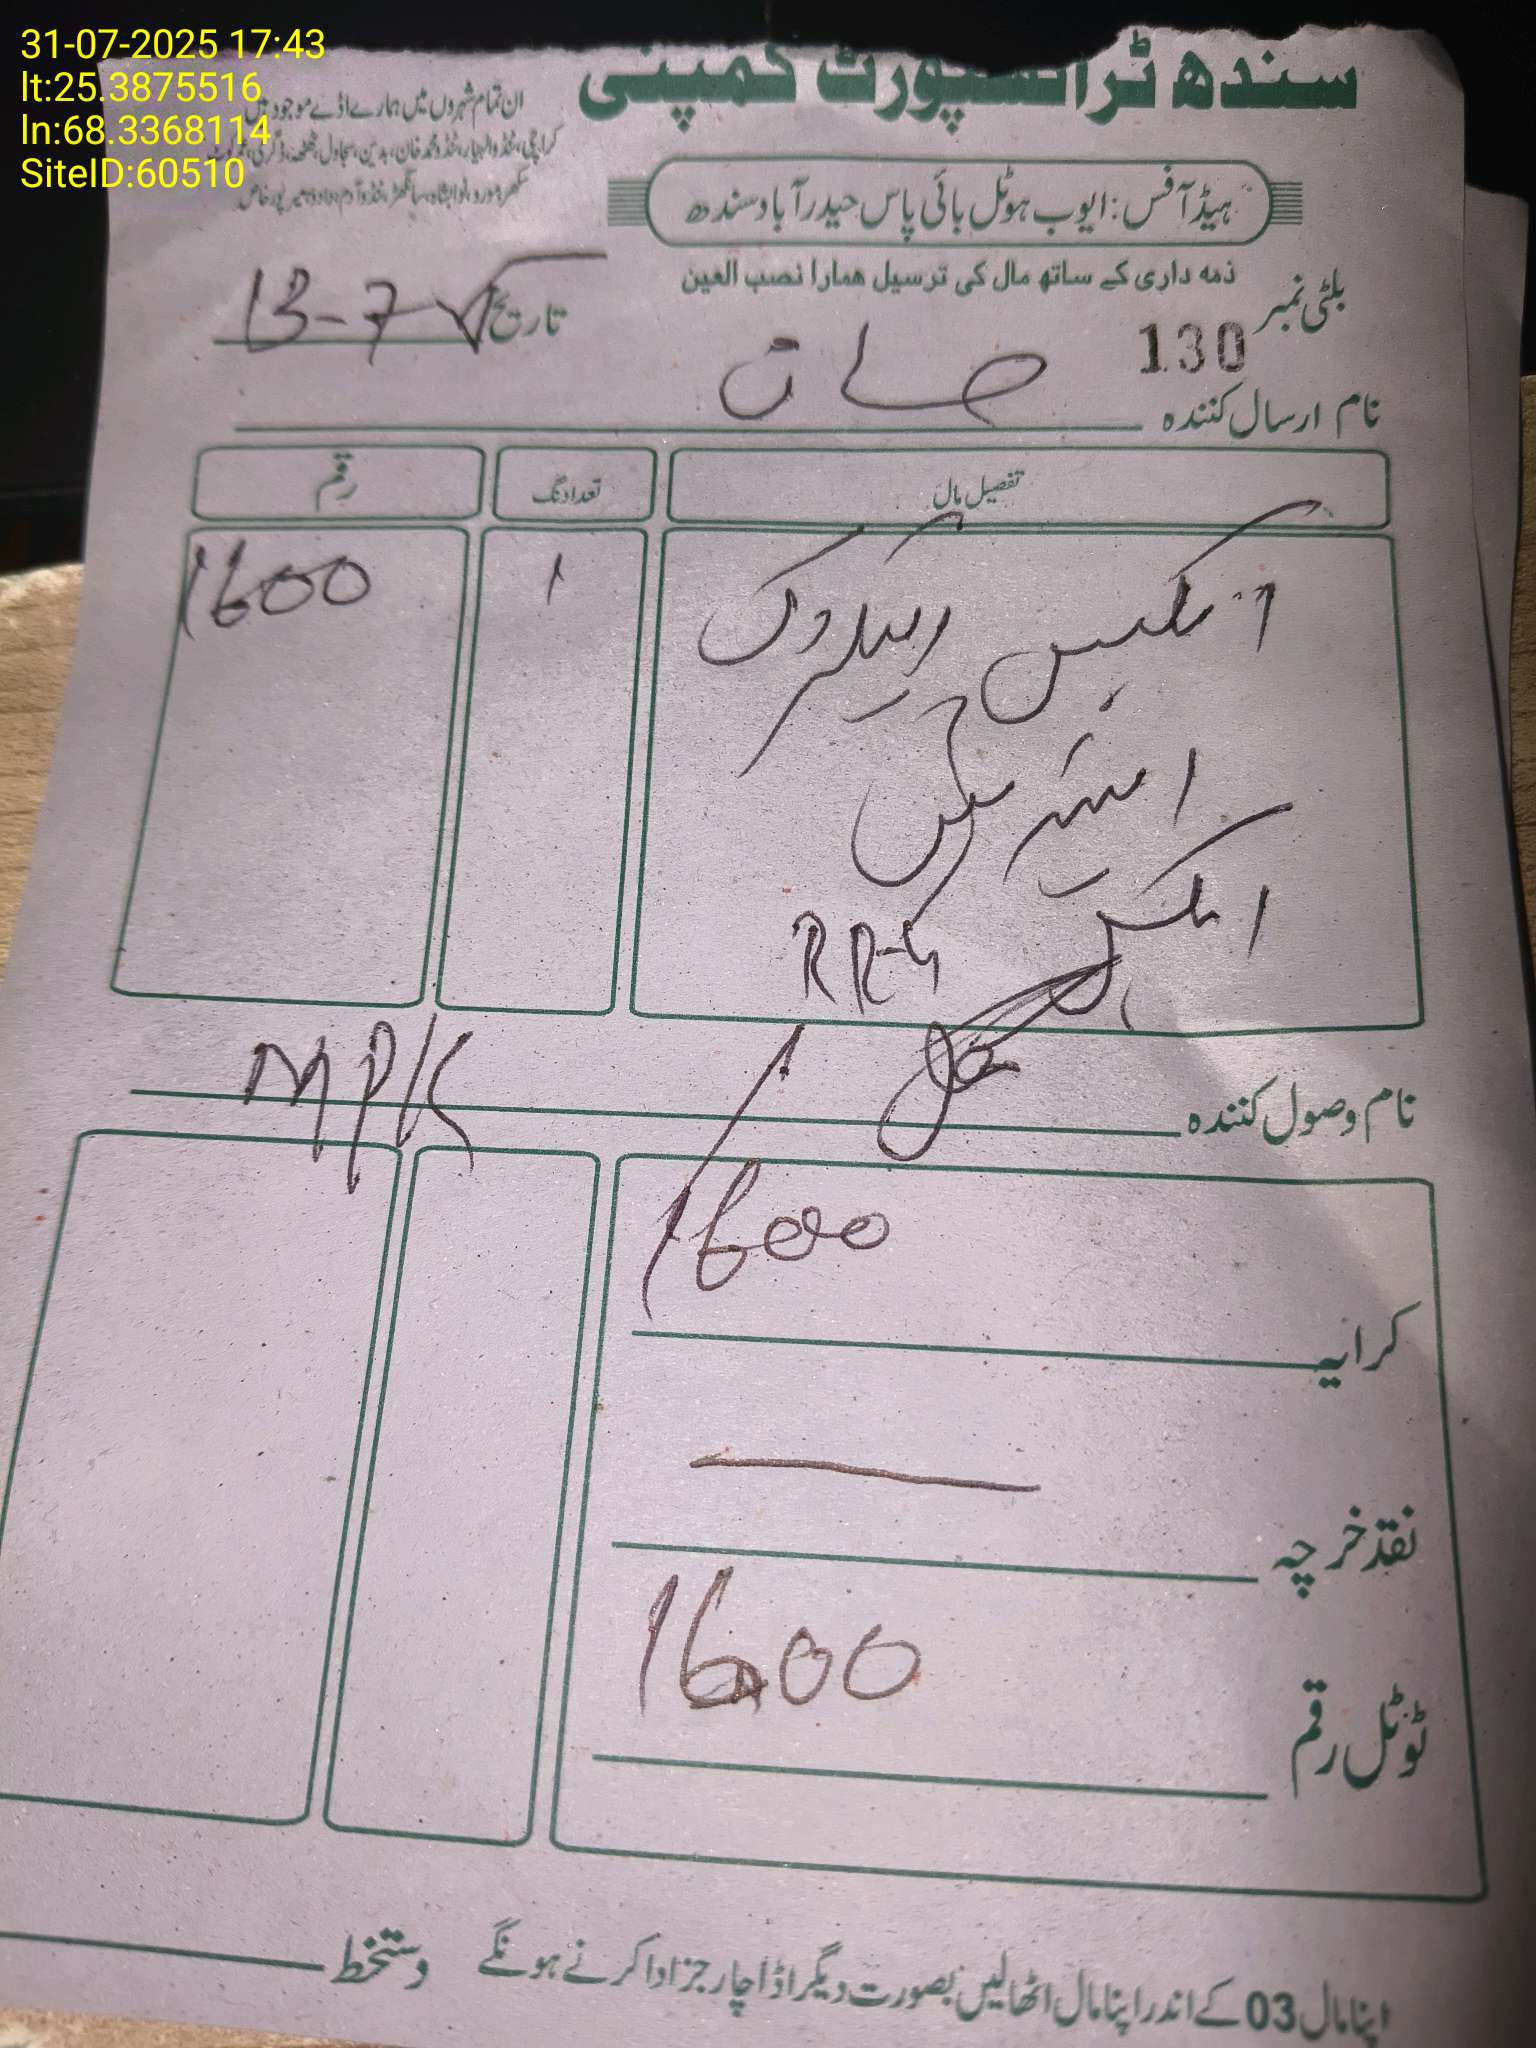 31-07-2025 17:43
lt:25.3875516
ln:68.3368114
SiteID:60510
سندھ ٹرانسپورٹ کمپنی
ان تمام شہروں میں ہمارے اڈے موجود ہیں
کراچی، ٹنڈوالہیار، ٹنڈو محمد خان، بدین، سجاول، ٹھٹھہ، ڈگری، عمرکوٹ
سکھر، مورو، نوابشاہ، سانگھڑ، ٹنڈوآدم، دادو، میرپورخاص
ہیڈ آفس: ایوب ہوٹل بائی پاس حیدرآباد سندھ
ذمہ داری کے ساتھ مال کی ترسیل ھمارا نصب العین
بلٹی نمبر 130
تاریخ 13-7
نام ارسال کنندہ
تفصیل مال
تعداد نگ
رقم
1
1600
RR-4
نام وصول کنندہ
MPK
کرایہ 1600
نقد خرچہ
ٹوٹل رقم 1600
اپنا مال 03 کے اندر اپنا مال اٹھا لیں بصورت دیگر اڈا چارجز ادا کرنے ہونگے
دستخط